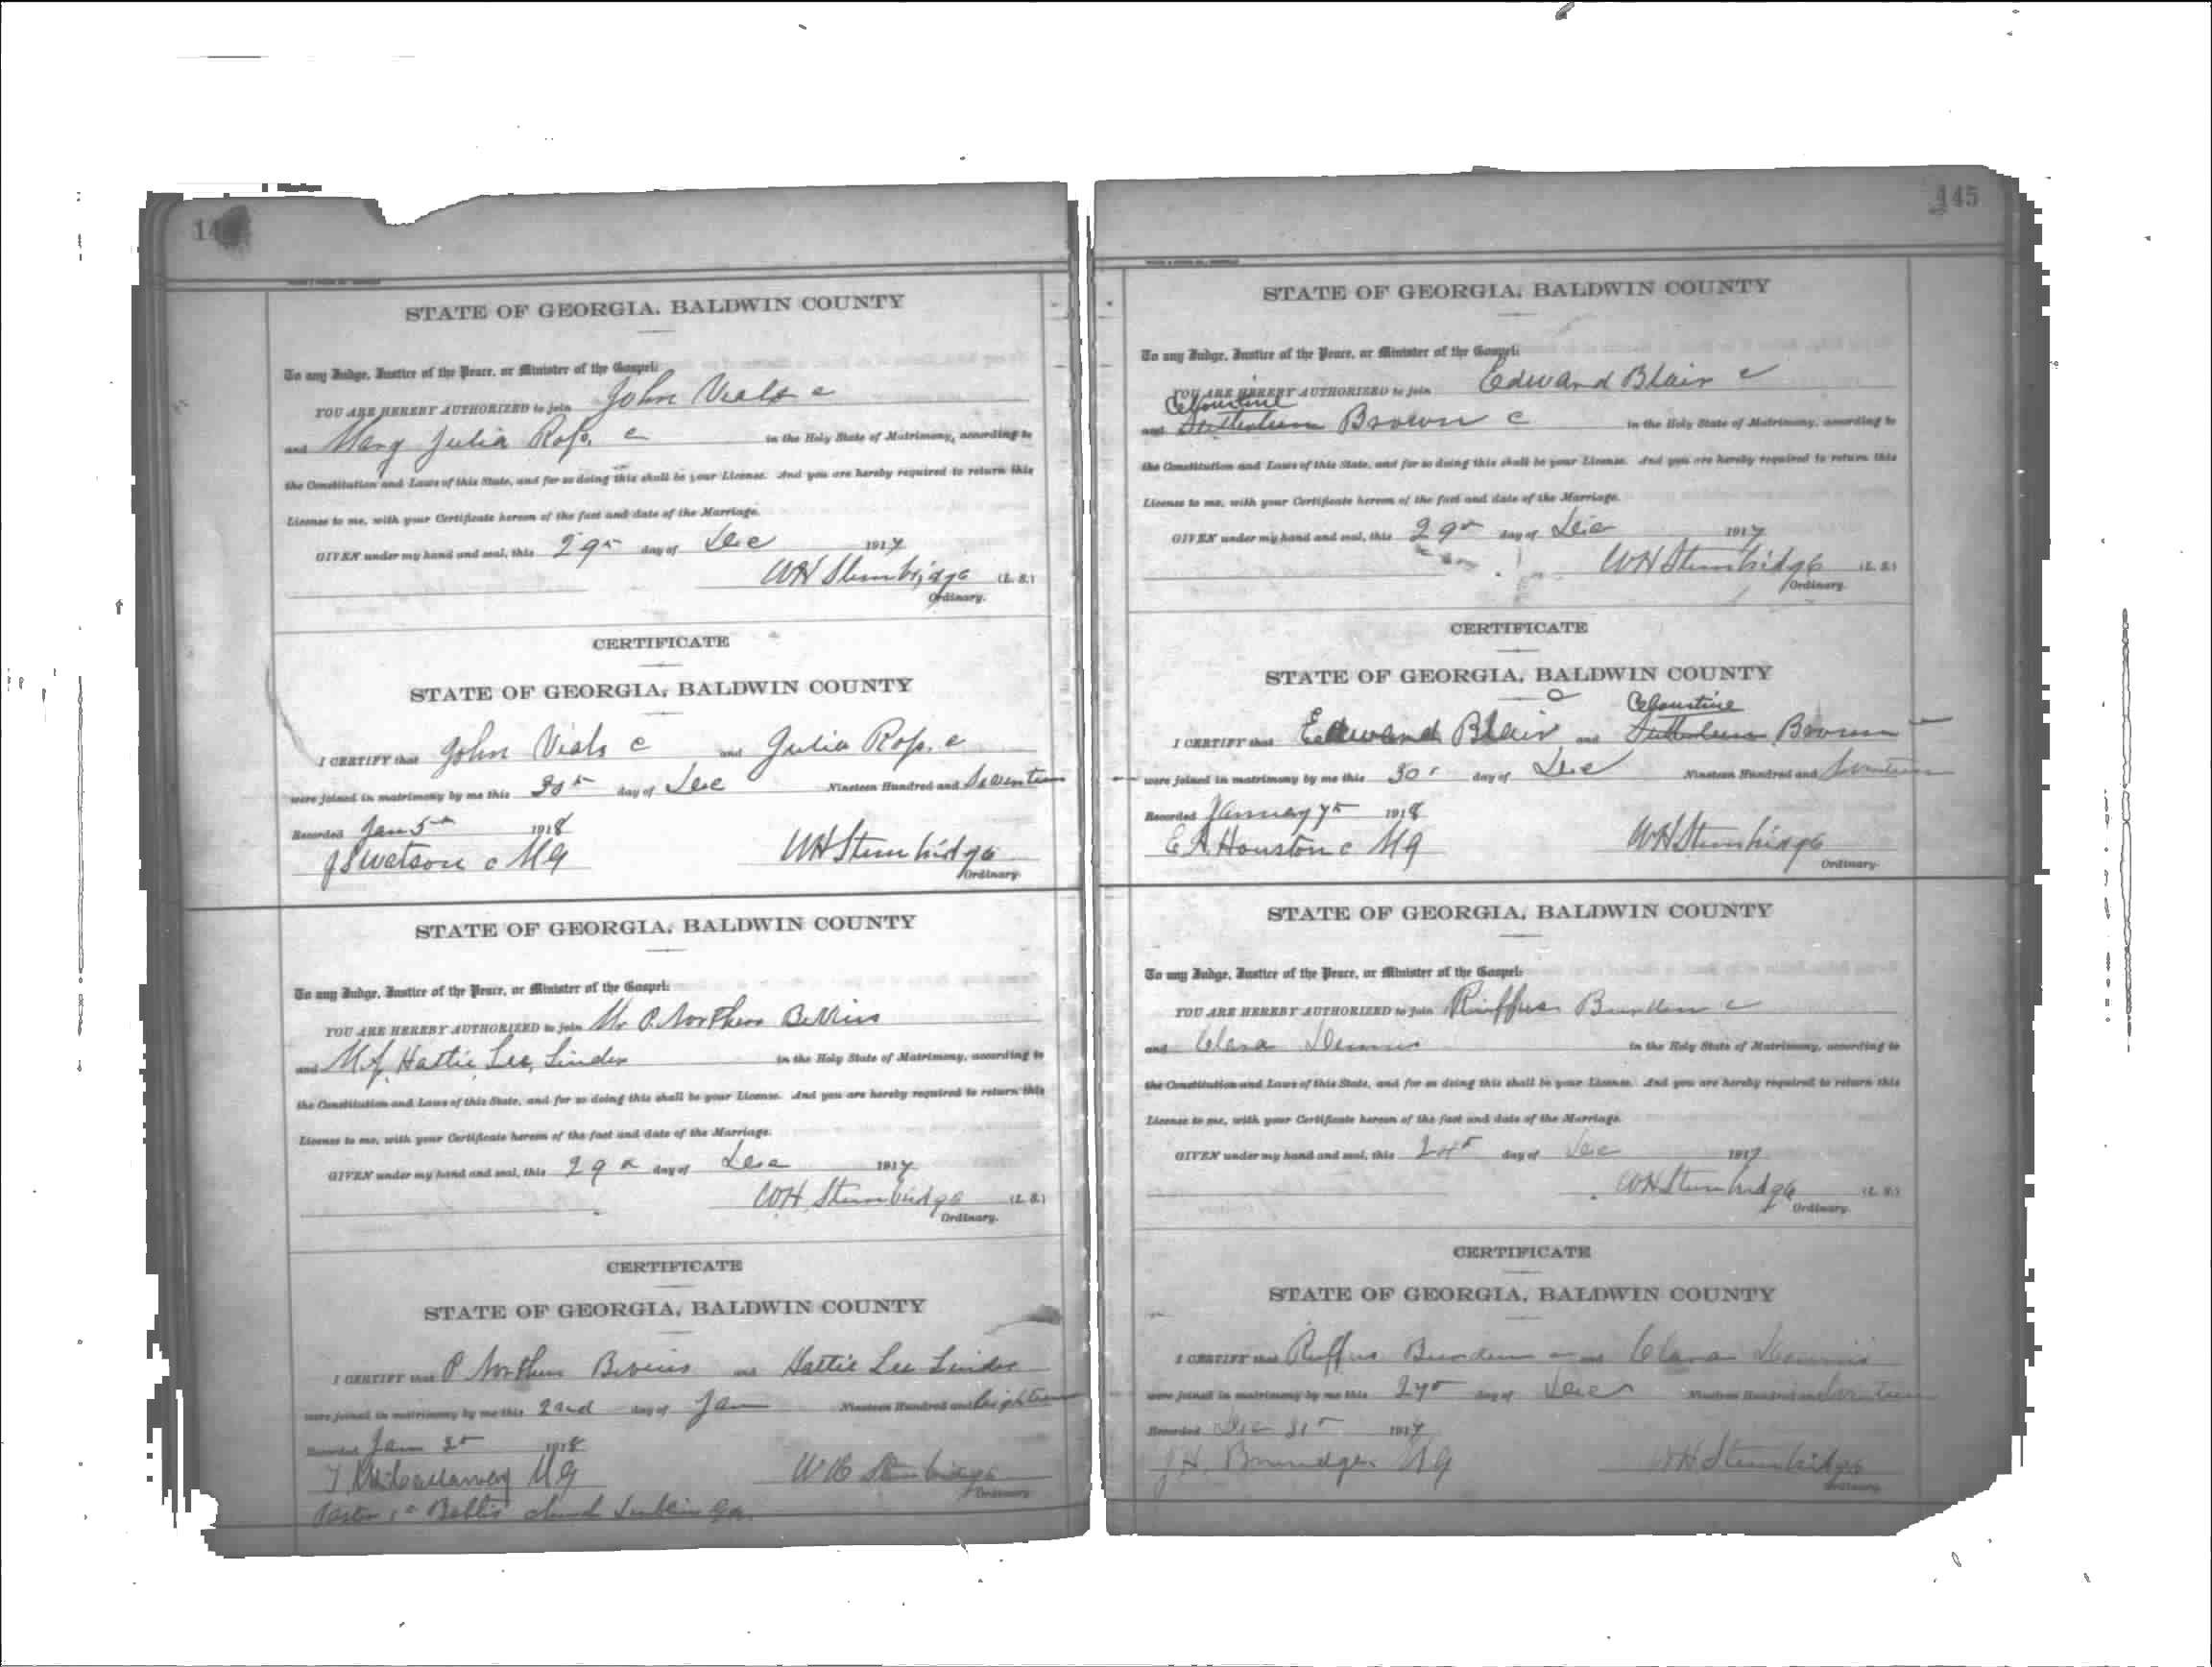 STATE OF GEORGIA, BALDWIN COUNTY
To any Judge, Justice of the Peace, or Minister of the Gospel:
YOU ARE HEREBY AUTHORIZED to join John Veals c
and Mary Julia Ross, c in the Holy State of Matrimony, according to
the Constitution and Laws of this State, and for so doing this shall be your License. And you are hereby required to return this
License to me, with your Certificate hereon of the fact and date of the Marriage.
GIVEN under my hand and seal, this 29th day of Dec 1917
WH Stembridge (L. S.)
Ordinary.
CERTIFICATE
STATE OF GEORGIA, BALDWIN COUNTY
I CERTIFY that John Veals c and Julia Ross. c
were joined in matrimony by me this 30th day of Dec Nineteen Hundred and Seventeen
Recorded Jan 5th 1918
J S Watson c MG WH Stembridge
Ordinary.
STATE OF GEORGIA, BALDWIN COUNTY
To any Judge, Justice of the Peace, or Minister of the Gospel:
YOU ARE HEREBY AUTHORIZED to join Mr. P. Northern Bivins
and Ms. Hattie Lee, Linder in the Holy State of Matrimony, according to
the Constitution and Laws of this State, and for so doing this shall be your License. And you are hereby required to return this
License to me, with your Certificate hereon of the fact and date of the Marriage.
GIVEN under my hand and seal, this 29th day of Dec 1917
WH Stembridge (L. S.)
Ordinary.
CERTIFICATE
STATE OF GEORGIA, BALDWIN COUNTY
I CERTIFY that P Northern Bivins and Hattie Lee Linder
were joined in matrimony by me this 22nd day of Jan Nineteen Hundred and Eighteen
Recorded Jan 1918
Callaway MG WH Stembridge
Ordinary
Pastor 1st church Dublin Ga.
145
STATE OF GEORGIA, BALDWIN COUNTY
To any Judge, Justice of the Peace, or Minister of the Gospel:
YOU ARE HEREBY AUTHORIZED to join Edward Blair c
Cloustine
and Brown c in the Holy State of Matrimony, according to
the Constitution and Laws of this State, and for so doing this shall be your License. And you are hereby required to return this
License to me, with your Certificate hereon of the fact and date of the Marriage.
GIVEN under my hand and seal, this 29th day of Dec 1917
WH Stembridge (L. S.)
Ordinary.
CERTIFICATE
STATE OF GEORGIA, BALDWIN COUNTY
Cloustine
I CERTIFY that Edward Blair and Brown
were joined in matrimony by me this 30th day of Dec Nineteen Hundred and Seventeen
Recorded January 7th 1918
E A Houston c MG WH Stembridge
Ordinary.
STATE OF GEORGIA, BALDWIN COUNTY
To any Judge, Justice of the Peace, or Minister of the Gospel:
YOU ARE HEREBY AUTHORIZED to join Ruffus Burden c
and Clara Dennis in the Holy State of Matrimony, according to
the Constitution and Laws of this State, and for so doing this shall be your License. And you are hereby required to return this
License to me, with your Certificate hereon of the fact and date of the Marriage.
GIVEN under my hand and seal, this 24th day of Dec 1917
WH Stembridge (L. S.)
Ordinary.
CERTIFICATE
STATE OF GEORGIA, BALDWIN COUNTY
I CERTIFY that Ruffus Burden and Clara Dennis
were joined in matrimony by me this 27th day of Dec Nineteen Hundred and Seventeen
Recorded Dec 31st 1917
J H. Brundger MG WH Stembridge
Ordinary